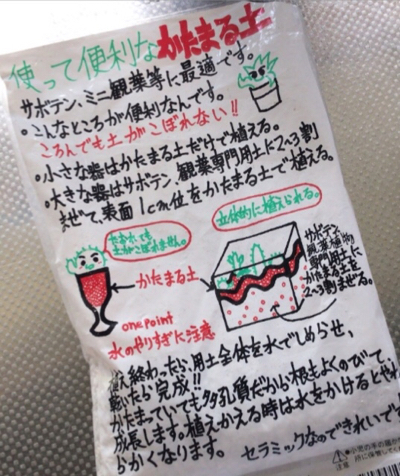 使って便利なかたまる土
サボテン、ミニ観葉等に最適です。
・こんなところが便利なんです。
ころんでも土がこぼれない!!
・小さな器はかたまる土だけで植える。
・大きな器はサボテン、観葉専門用土に2~3割
まぜて、表面1cm位をかたまる土で植える。
たおれても
土がこぼれません。
立体的に植えられる。
かたまる土
サボテン
観葉植物
専門用土に
かたまる土を
2~3割まぜる。
one Point
水のやりすぎに注意
終わったら、用土全体を水でしめらせ、
乾いたら完成!!
かたまっていても多孔質だから根もよくのびて、
成長します。植えかえる時は水をかけるとやわ
らかくなります。
セラミックなのできれいです